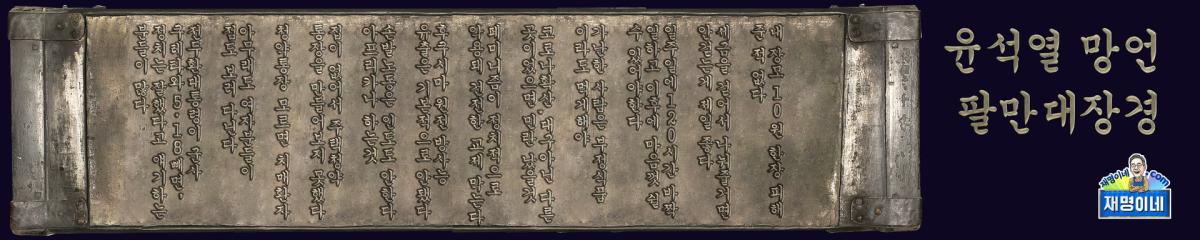 윤석열 망언
팔만대장경
내 장모 10원 한장 피해
준 적 없다
일주일에 120시간 바짝
일하고 이후에 마음껏 쉴
수 있어야한다
가난한 사람은 부정식품
이라도 먹게해야
코로나확산, 대구아닌 다른
곳이었으면 민란 났을것
페미니즘이 정치적으로
악용되 건전한 교제 막는다
후쿠시마 원전 방사능
유출은 기본적으로 안됐다
손발노동은 인도도 안한다
아프리카나 하는것
청약통장 모르면 치매환자
집이 없어서 주택청약
통장을 만들어보지 못했다
여자분들이
점도 보러 다닌다
전두환대통령이 군사
쿠데타와 5.18빼면,
정치는 잘했다고 얘기하는
분들이 많다
재명이네.com
재명이네